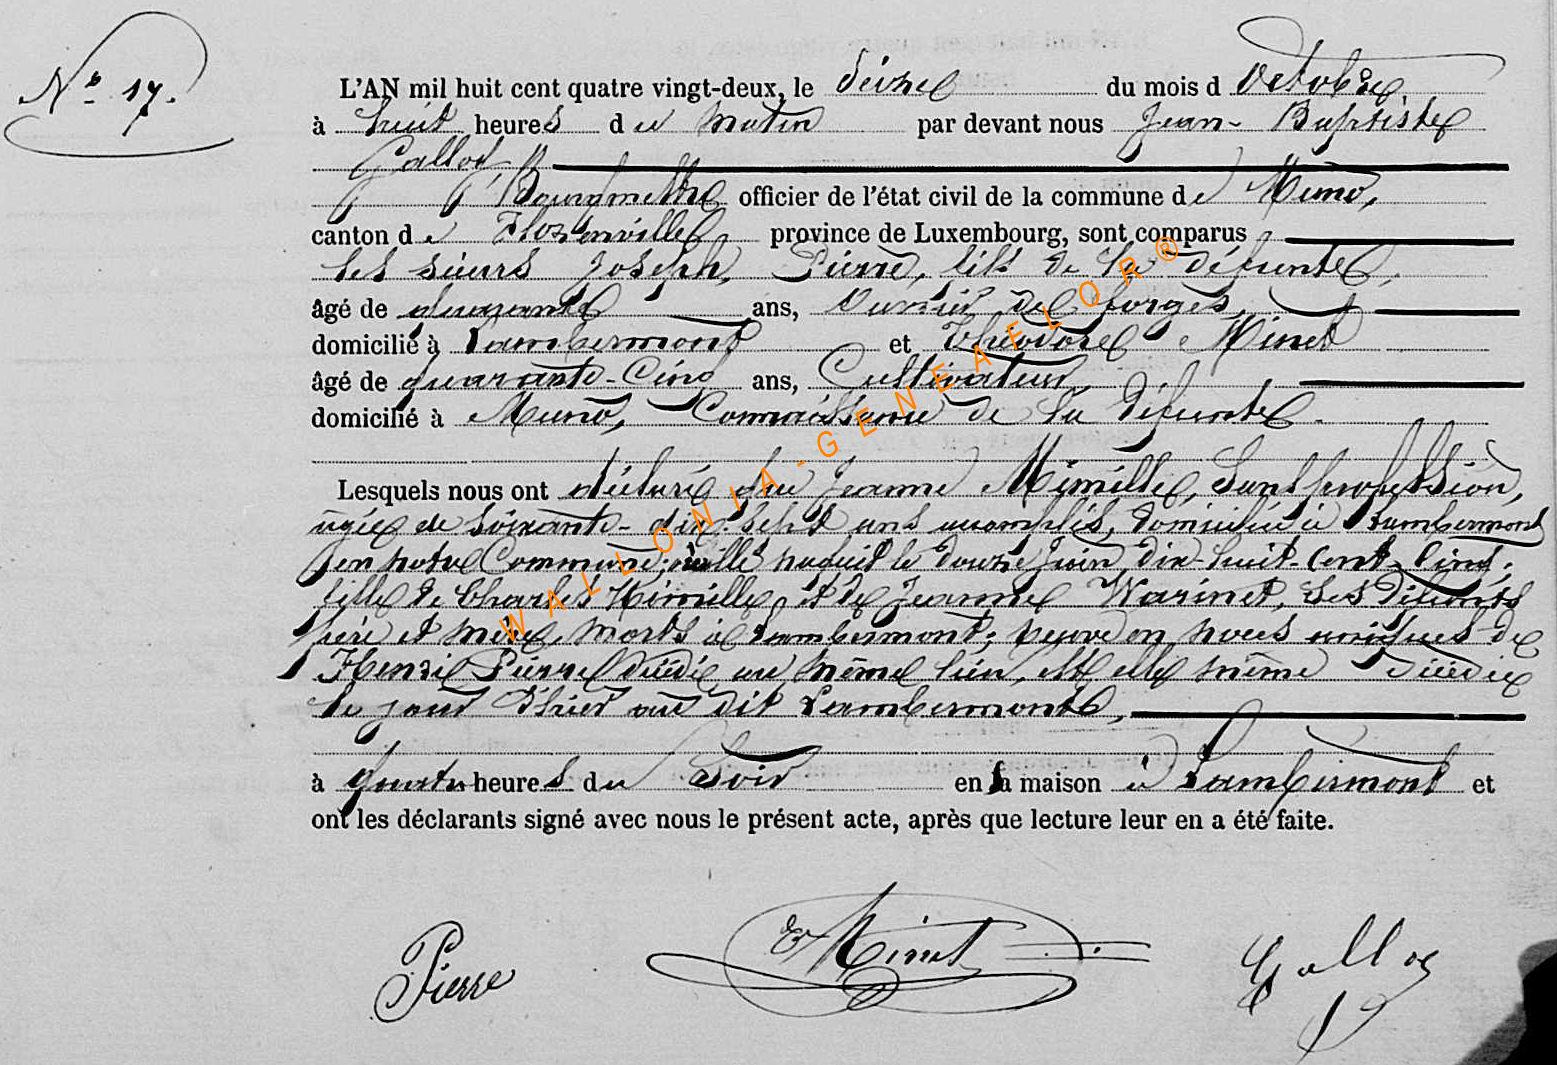 N° 17.
L'AN mil huit cent quatre vingt-deux, le seizne du mois d'Octobre
à huit heures du matin par devant nous Jean-Baptiste
Gallot
Bourgmestre officier de l'état civil de la commune de Muno,
canton de Florenville province de Luxembourg, sont comparus
les sieurs Joseph, Pierre, fils de la défunte,
âgé de quarante ans, ouvrier de forges,
domicilié à Lambermont et Théodore Minet
âgé de quarante-cinq ans, Cultivateur,
domicilié à Muno, Connaissance de la défunte.
Lesquels nous ont déclaré que Jeanne Mimille, Sans profession,
agée de soixante-dix-sept ans accomplis, domiciliée à Lambermont
en notre Commune, naquit le douze juin dix-huit-cent-cinq,
fille de Charles Mimille, et de Jeanne Warinet, ses défunts
père et mère, morts à Lambermont; veuve en noces uniques de
Henri Pierre décédé au même lieu, est elle même décédée
le jour d'hier au dit Lambermont,
à quatre heures du Soir en sa maison à Lambermont et
ont les déclarants signé avec nous le présent acte, après que lecture leur en a été faite.
Pierre Minet Gallot
WALLONIA-GENEAELOR®